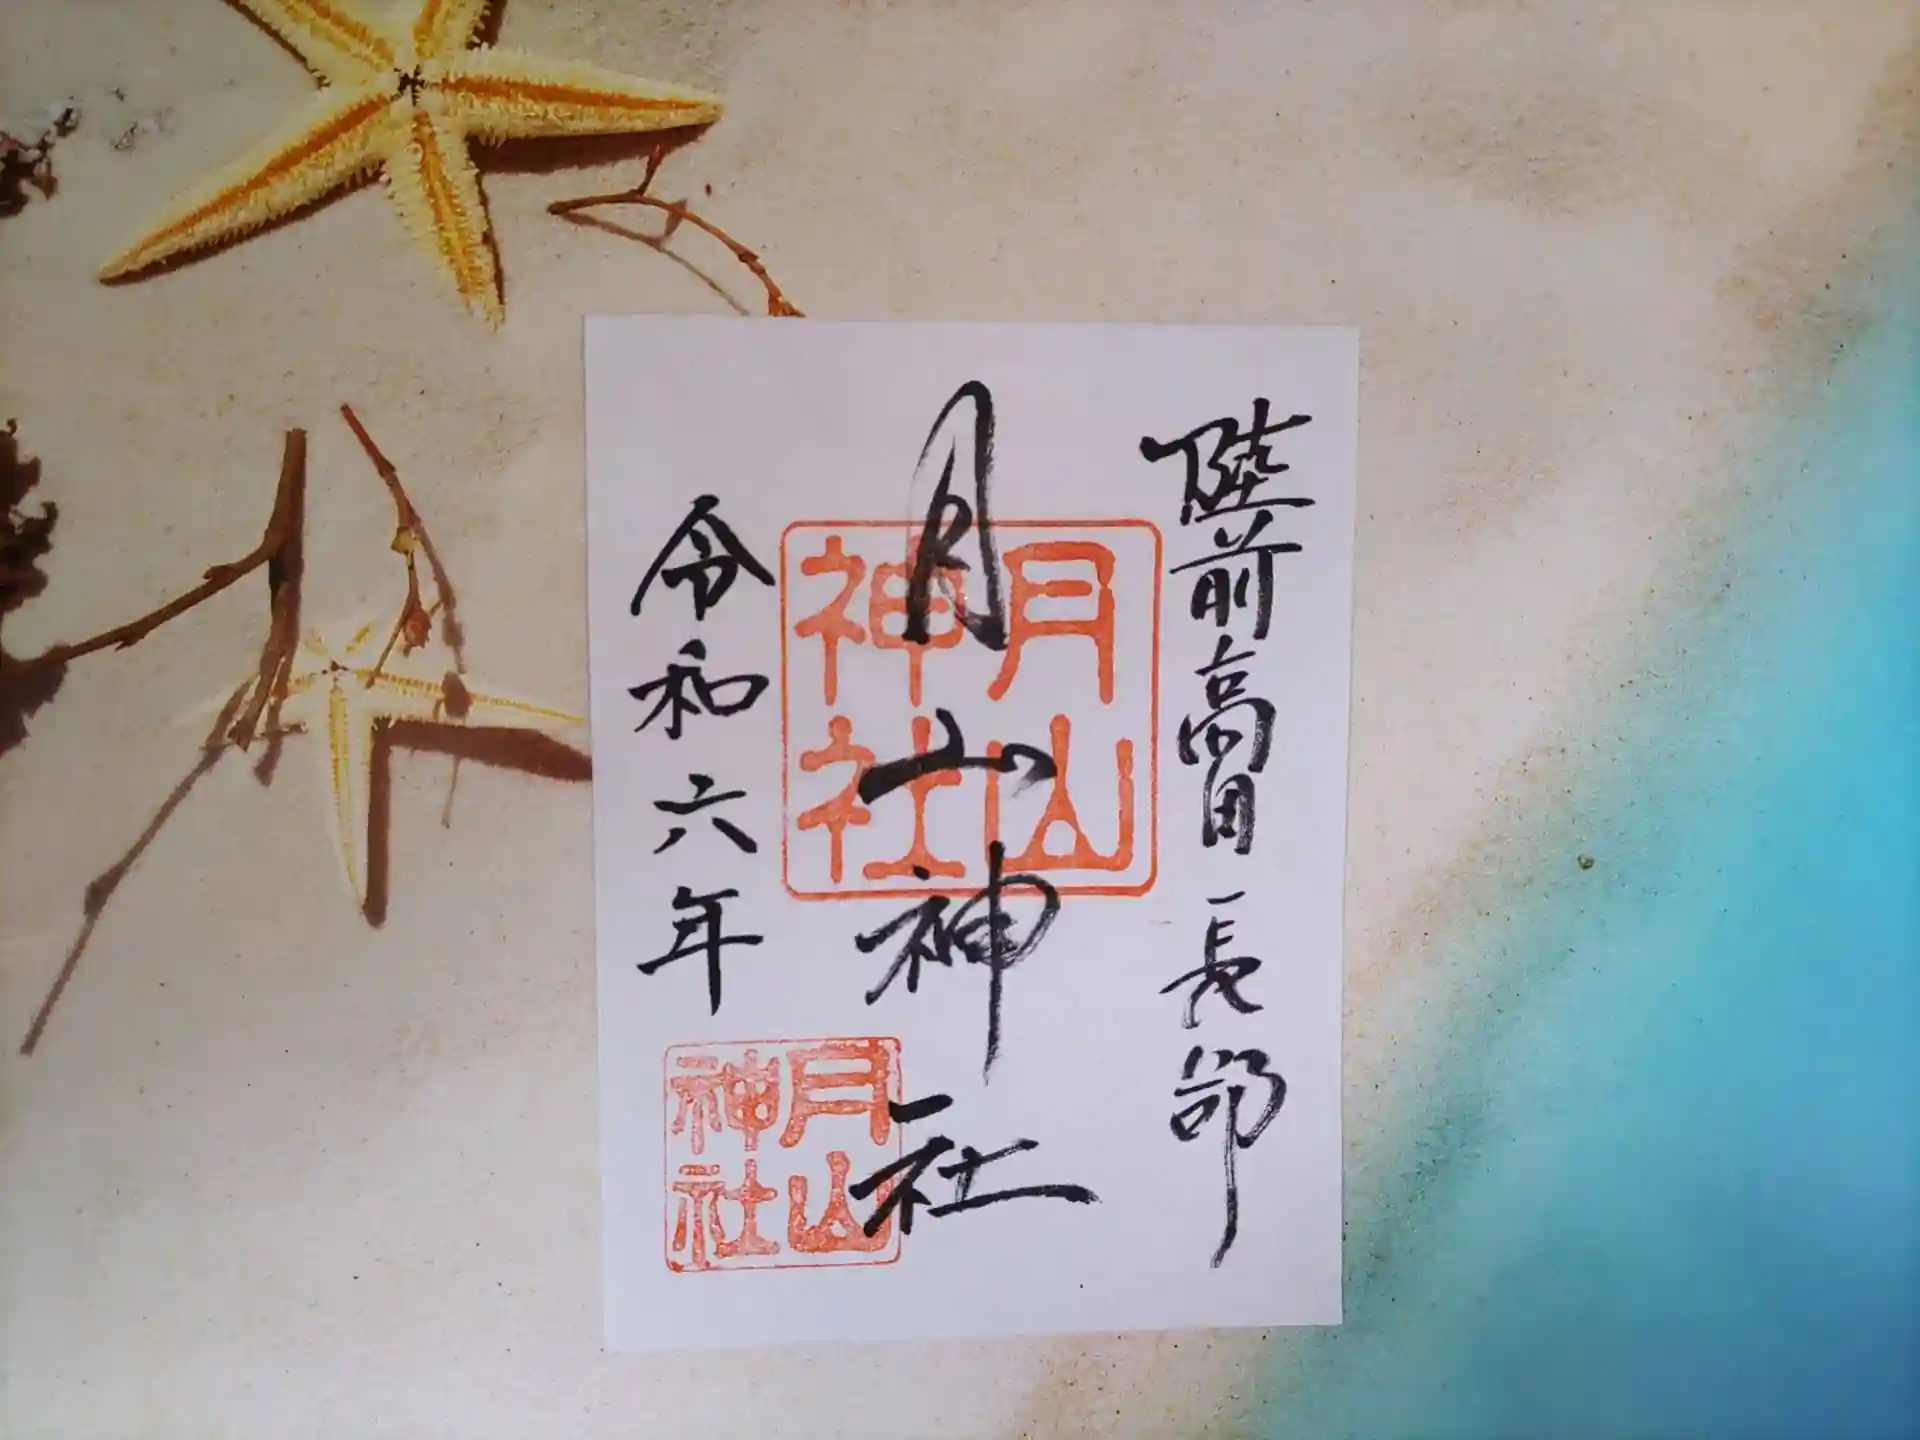 陸前高田長部
月山神社
月山神社
令和六年
月山神社